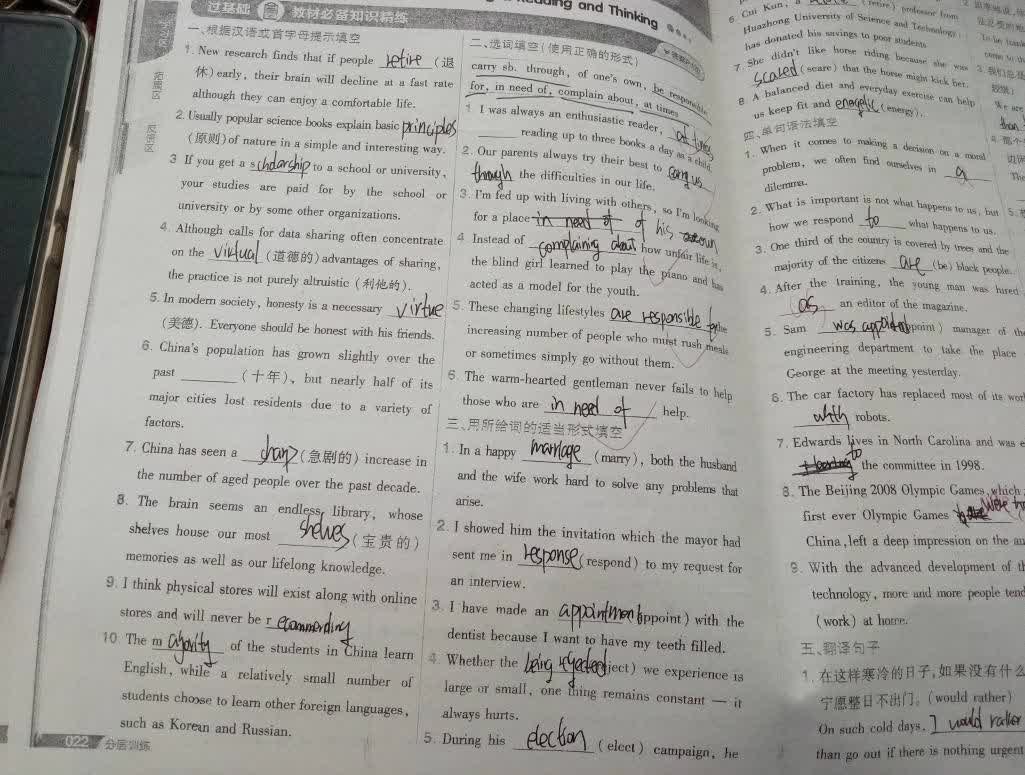 Reading and Thinking
过基础 教材必备知识精练
一、根据汉语或首字母提示填空
1. New research finds that if people retire (退
休) early, their brain will decline at a fast rate
although they can enjoy a comfortable life.
2. Usually popular science books explain basic principles
(原则) of nature in a simple and interesting way.
3 If you get a scholarship to a school or university,
your studies are paid for by the school or
university or by some other organizations.
4. Although calls for data sharing often concentrate
on the virtual (道德的) advantages of sharing,
the practice is not purely altruistic (利他的).
5. In modern society, honesty is a necessary virtue
(美德). Everyone should be honest with his friends.
6. China's population has grown slightly over the
past ______ (十年), but nearly half of its
major cities lost residents due to a variety of
factors.
7. China has seen a sharp (急剧的) increase in
the number of aged people over the past decade.
8. The brain seems an endless library, whose
shelves house our most shelves (宝贵的)
memories as well as our lifelong knowledge.
9. I think physical stores will exist along with online
stores and will never be recommending
10. The majority of the students in China learn
English, while a relatively small number of
students choose to learn other foreign languages,
such as Korean and Russian.
022 分层训练
二、选词填空(使用正确的形式)
carry sb. through, of one's own, be responsible
for, in need of, complain about, at times
1. I was always an enthusiastic reader, at times
______ reading up to three books a day as a child.
2. Our parents always try their best to carry us
through the difficulties in our life.
3. I'm fed up with living with others, so I'm looking
for a place in need of of his own
4 Instead of complaining about how unfair life is,
the blind girl learned to play the piano and has
acted as a model for the youth.
5. These changing lifestyles are responsible for the
increasing number of people who must rush meals
or sometimes simply go without them.
6. The warm-hearted gentleman never fails to help
those who are in need of help.
三、用所给词的适当形式填空
1. In a happy marriage (marry), both the husband
and the wife work hard to solve any problems that
arise.
2. I showed him the invitation which the mayor had
sent me in response (respond) to my request for
an interview.
3. I have made an appointment (appoint) with the
dentist because I want to have my teeth filled.
4. Whether the being rejected (reject) we experience is
large or small, one thing remains constant — it
always hurts.
5. During his election (elect) campaign, he
6. Cui Kun, a (retire) professor from
Huazhong University of Science and Technology,
has donated his savings to poor students
7 She didn't like horse riding because she was
scared (scare) that the horse might kick her.
8 A balanced diet and everyday exercise can help
us keep fit and enegetic (energy).
四、单句语法填空
1. When it comes to making a decision on a moral
problem, we often find ourselves in a
dilemma.
2. What is important is not what happens to us, but
how we respond to what happens to us.
3. One third of the country is covered by trees and the
majority of the citizens are (be) black people.
4. After the training, the young man was hired
as an editor of the magazine.
5. Sam was appointed (appoint) manager of the
engineering department to take the place
George at the meeting yesterday.
6. The car factory has replaced most of its
with robots.
7. Edwards lives in North Carolina and was
to the committee in 1998.
8. The Beijing 2008 Olympic Games, which
first ever Olympic Games were
China, left a deep impression on the
9. With the advanced development of
technology, more and more people tend
(work) at home.
五、翻译句子
1. 在这样寒冷的日子,如果没有什么
宁愿整日不出门。(would rather)
On such cold days, I would rather
than go out if there is nothing urgent